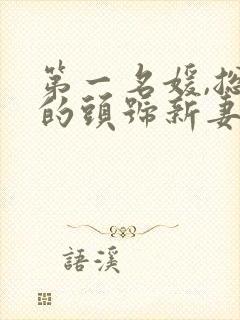 第一名媛,總
的頭號新妻
語溪